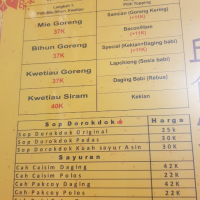 Mie Goreng
37K
Bihun Goreng
37K
Kwetiau Goreng
37K
Kwetiau Siram
40K
Samcan (Goreng Kering)
(+11K)
Baconikien
(+11K)
Special (Kekian+Daging babi)
(+11K)
Lapchiong (Sosis babi)
Daging Babi (Rebus)
Kekian
Sop Dorokdok Harga
Sop Dorokdok Original 25k
Sop Dorokdok Pedas 30K
Sop Dorokdok Kuah sayur Asin 30K
Sayuran
Cah Caisim Daging 42K
Cah Caisim Polos 22K
Cah Pakcoy Daging 42K
Cah Pakcoy Polos 22K